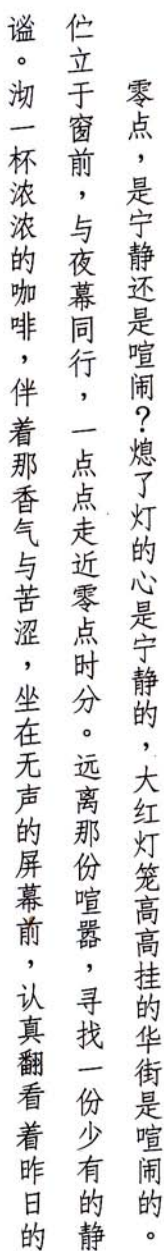 零点，是宁静还是喧闹？熄了灯的心是宁静的，大红灯笼高高挂的华街是喧闹的。
伫立于窗前，与夜幕同行，一点点走近零点时分。远离那份喧嚣，寻找一份少有的静
谧。沏一杯浓浓的咖啡，伴着那香气与苦涩，坐在无声的屏幕前，认真翻看着昨日的